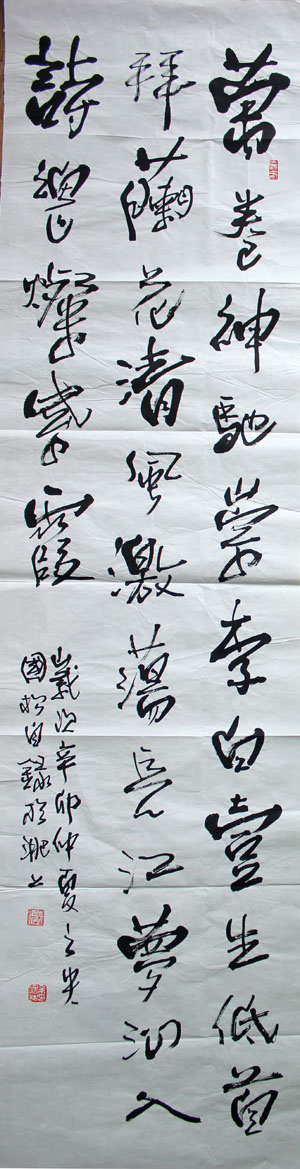 萬卷神馳崇李白壹生低首
拜蘭花清風激蕩長江夢入
詩燦紫霞
歲次辛卯仲夏之
國自錄於上